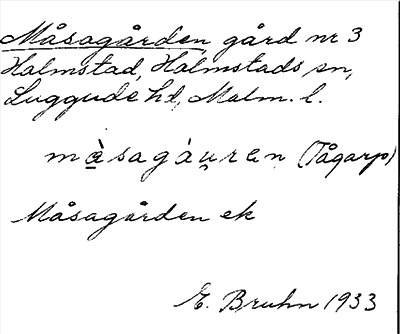 Måsagården gård nr 3
Halmstad, Halmstads sn,
Luggude hd, Malm. l.
mạ̀sagáu̯ran (Tågarp)
Måsagården ek
E. Bruhn 1933